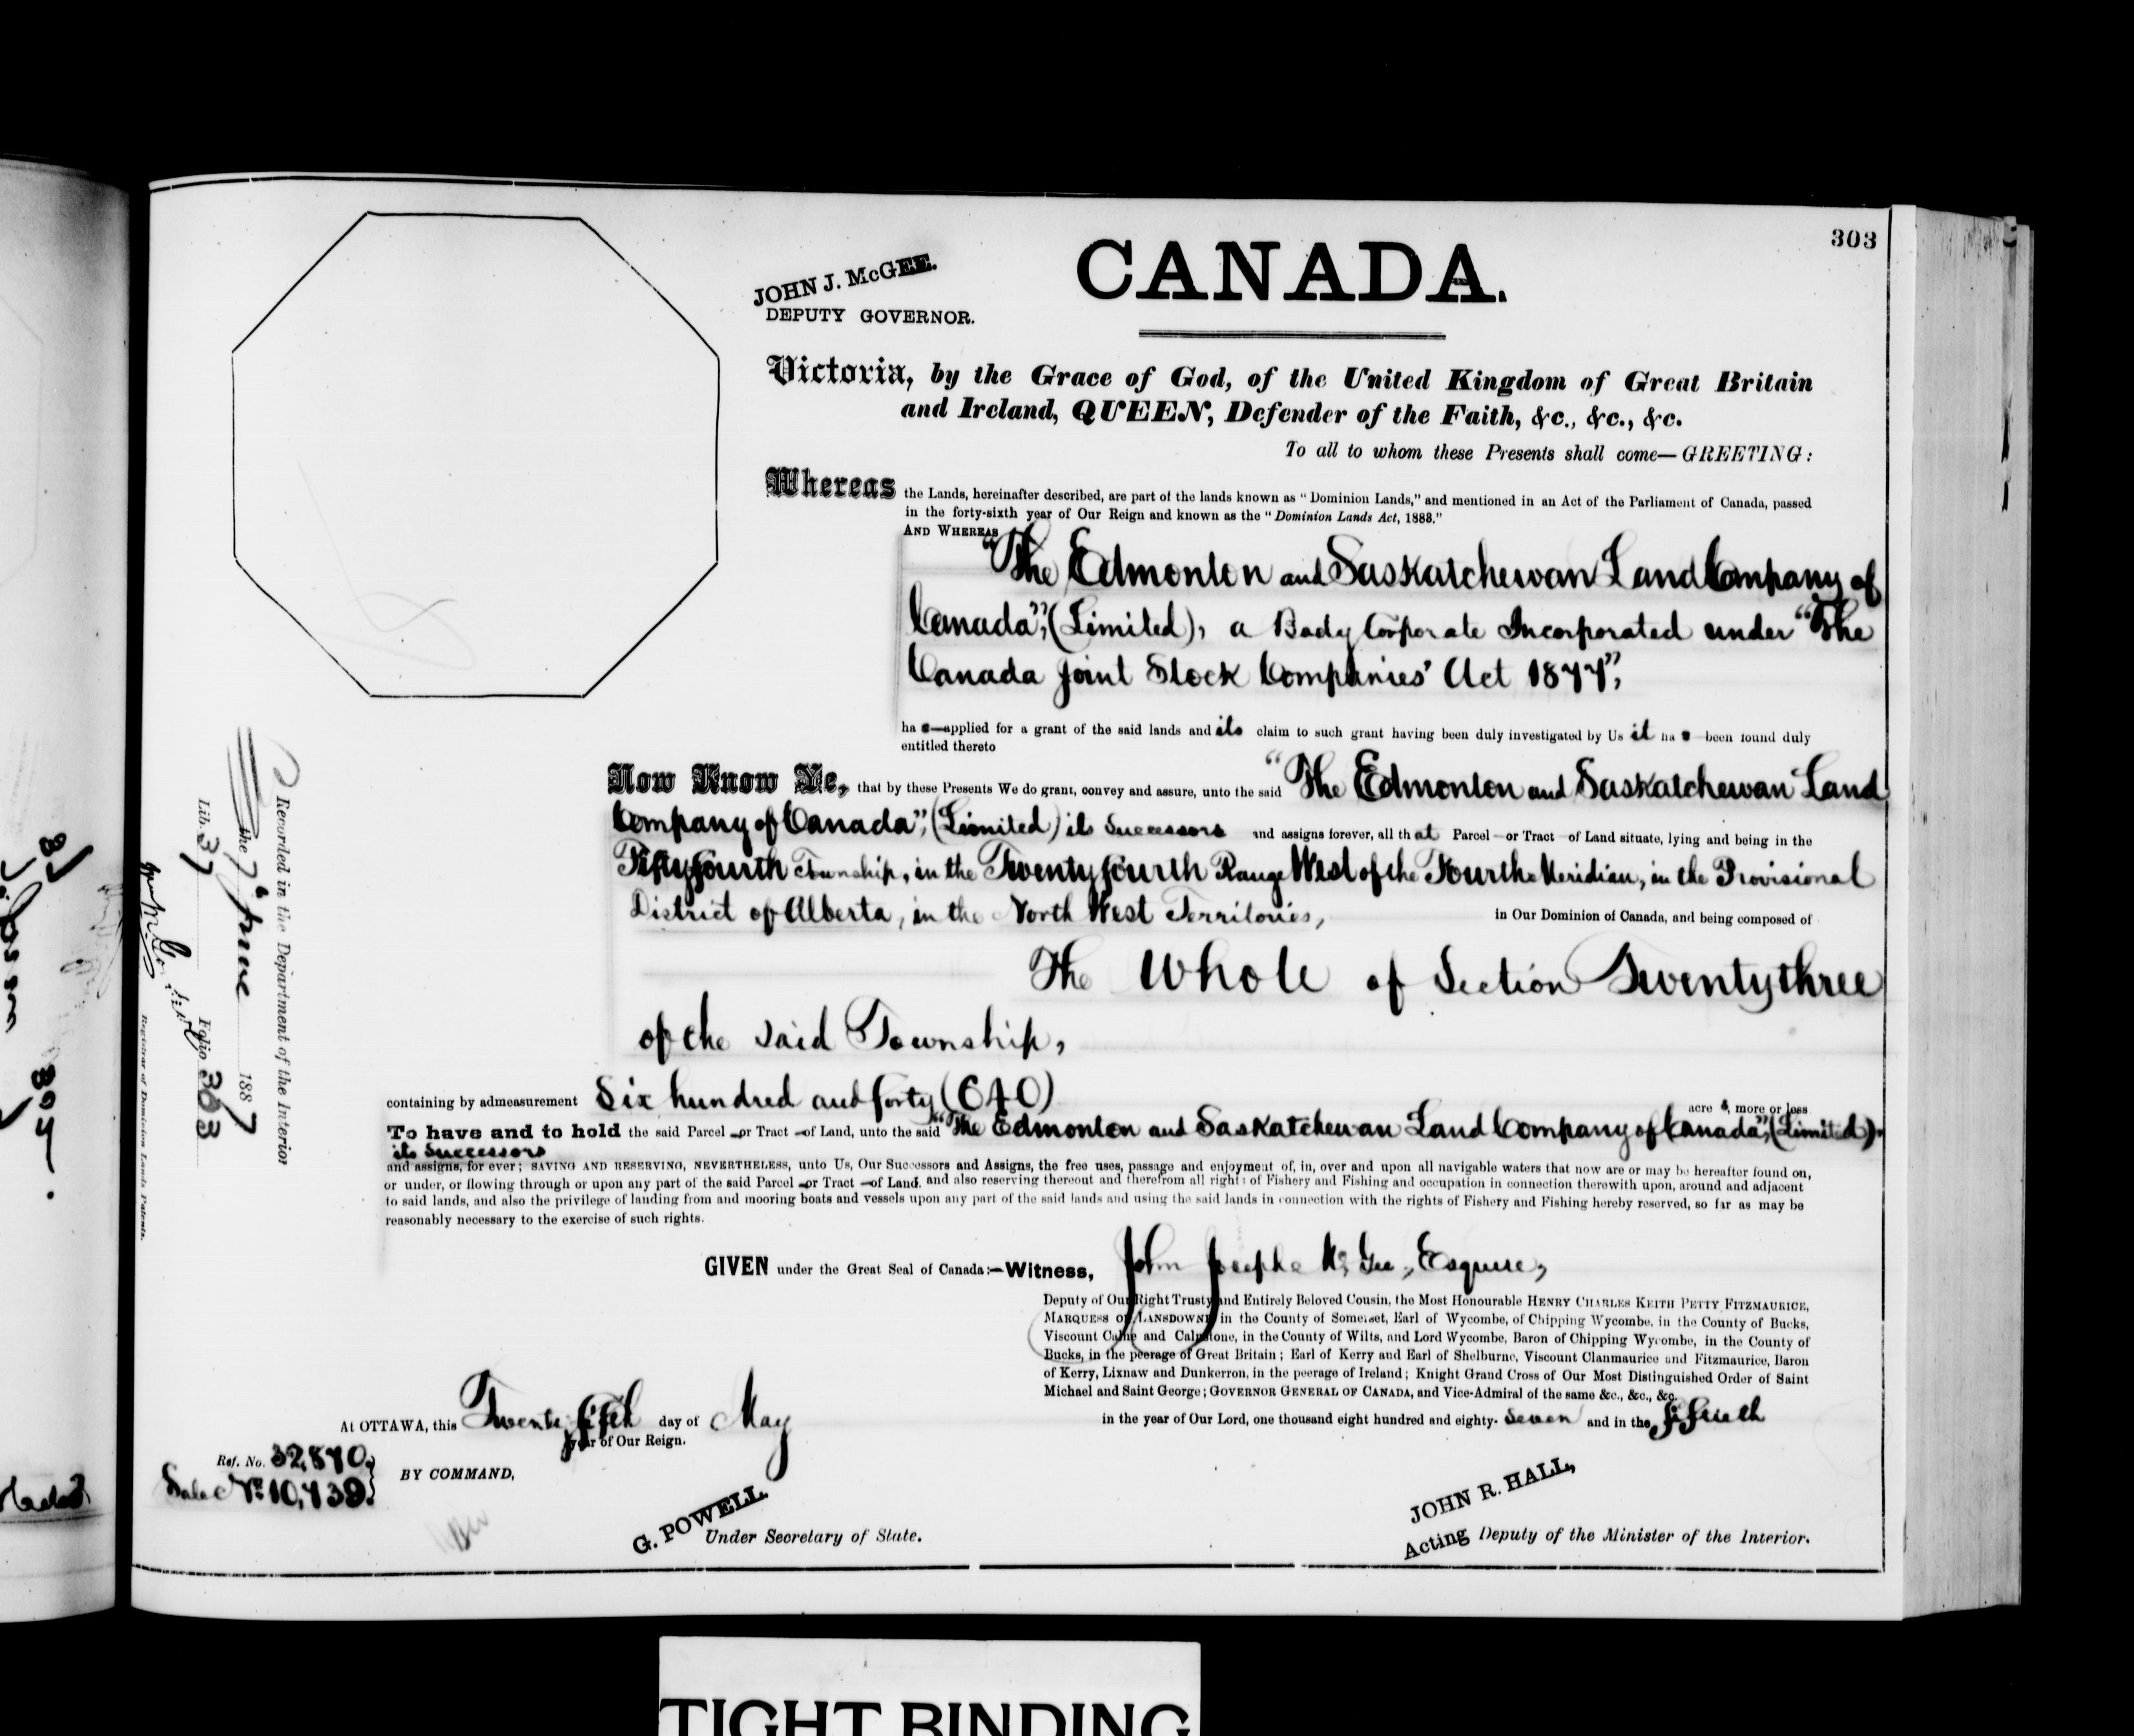 303
CANADA.
JOHN J. McGEE.
DEPUTY GOVERNOR.
Victoria, by the Grace of God, of the United Kingdom of Great Britain
and Ireland, QUEEN, Defender of the Faith, &c., &c., &c.
To all to whom these Presents shall come—GREETING:
Whereas the Lands, hereinafter described, are part of the lands known as "Dominion Lands," and mentioned in an Act of the Parliament of Canada, passed
in the forty-sixth year of Our Reign and known as the "Dominion Lands Act, 1883."
AND WHEREAS
"The Edmonton and Saskatchewan Land Company of
Canada", (Limited), a Body Corporate Incorporated under "The
Canada Joint Stock Companies' Act 1877",
has—applied for a grant of the said lands and its claim to such grant having been duly investigated by Us it has been found duly
entitled thereto
Now Know Ye, that by these Presents We do grant, convey and assure, unto the said "The Edmonton and Saskatchewan Land
Company of Canada", (Limited) its Successors and assigns forever, all that Parcel—or Tract—of Land situate, lying and being in the
Fifty fourth Township, in the Twenty fourth Range West of the Fourth Meridian, in the Provisional
District of Alberta, in the North West Territories, in Our Dominion of Canada, and being composed of
The Whole of Section Twenty three
of the said Township,
containing by admeasurement Six hundred and forty (640)
acres, more or less
To have and to hold the said Parcel—or Tract—of Land, unto the said "The Edmonton and Saskatchewan Land Company of Canada", (Limited).
its Successors
and assigns, for ever; SAVING AND RESERVING, NEVERTHELESS, unto Us, Our Successors and Assigns, the free uses, passage and enjoyment of, in, over and upon all navigable waters that now are or may be hereafter found on,
or under, or flowing through or upon any part of the said Parcel—or Tract—of Land. and also reserving thereout and therefrom all rights of Fishery and Fishing and occupation in connection therewith upon, around and adjacent
to said lands, and also the privilege of landing from and mooring boats and vessels upon any part of the said lands and using the said lands in connection with the rights of Fishery and Fishing hereby reserved, so far as may be
reasonably necessary to the exercise of such rights.
GIVEN under the Great Seal of Canada:—Witness, John Joseph McGee, Esquire,
Deputy of Our Right Trusty and Entirely Beloved Cousin, the Most Honourable HENRY CHARLES KEITH PETTY FITZMAURICE,
MARQUESS OF LANSDOWNE in the County of Somerset, Earl of Wycombe, of Chipping Wycombe, in the County of Bucks,
Viscount Calne and Calnstone, in the County of Wilts, and Lord Wycombe, Baron of Chipping Wycombe, in the County of
Bucks, in the peerage of Great Britain; Earl of Kerry and Earl of Shelburne, Viscount Clanmaurice and Fitzmaurice, Baron
of Kerry, Lixnaw and Dunkerron, in the peerage of Ireland; Knight Grand Cross of Our Most Distinguished Order of Saint
Michael and Saint George; GOVERNOR GENERAL OF CANADA, and Vice-Admiral of the same &c., &c., &c.
At OTTAWA, this Twenty fifth day of May in the year of Our Lord, one thousand eight hundred and eighty-seven and in the fiftieth
year of Our Reign.
Ref. No. 32,870.
Sale No. 10,739.
BY COMMAND,
G. POWELL.
Under Secretary of State.
JOHN R. HALL,
Acting Deputy of the Minister of the Interior.
Recorded in the Department of the Interior
the 7th June 1887
Lib. 37 Folio 303
Registrar of Dominion Lands Patents.
TIGHT BINDING